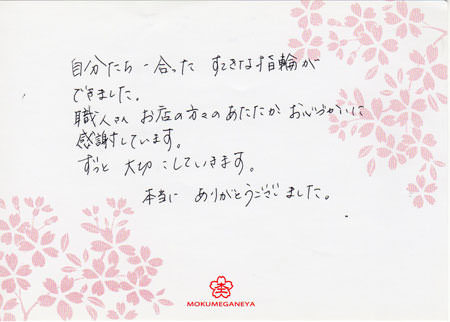 自分たちに合った すてきな指輪が
できました。
職人さん お店の方々のあたたかいお心づかいに
感謝しています。
ずっと 大切にしていきます。
本当に ありがとうございました。
MOKUMEGANEYA